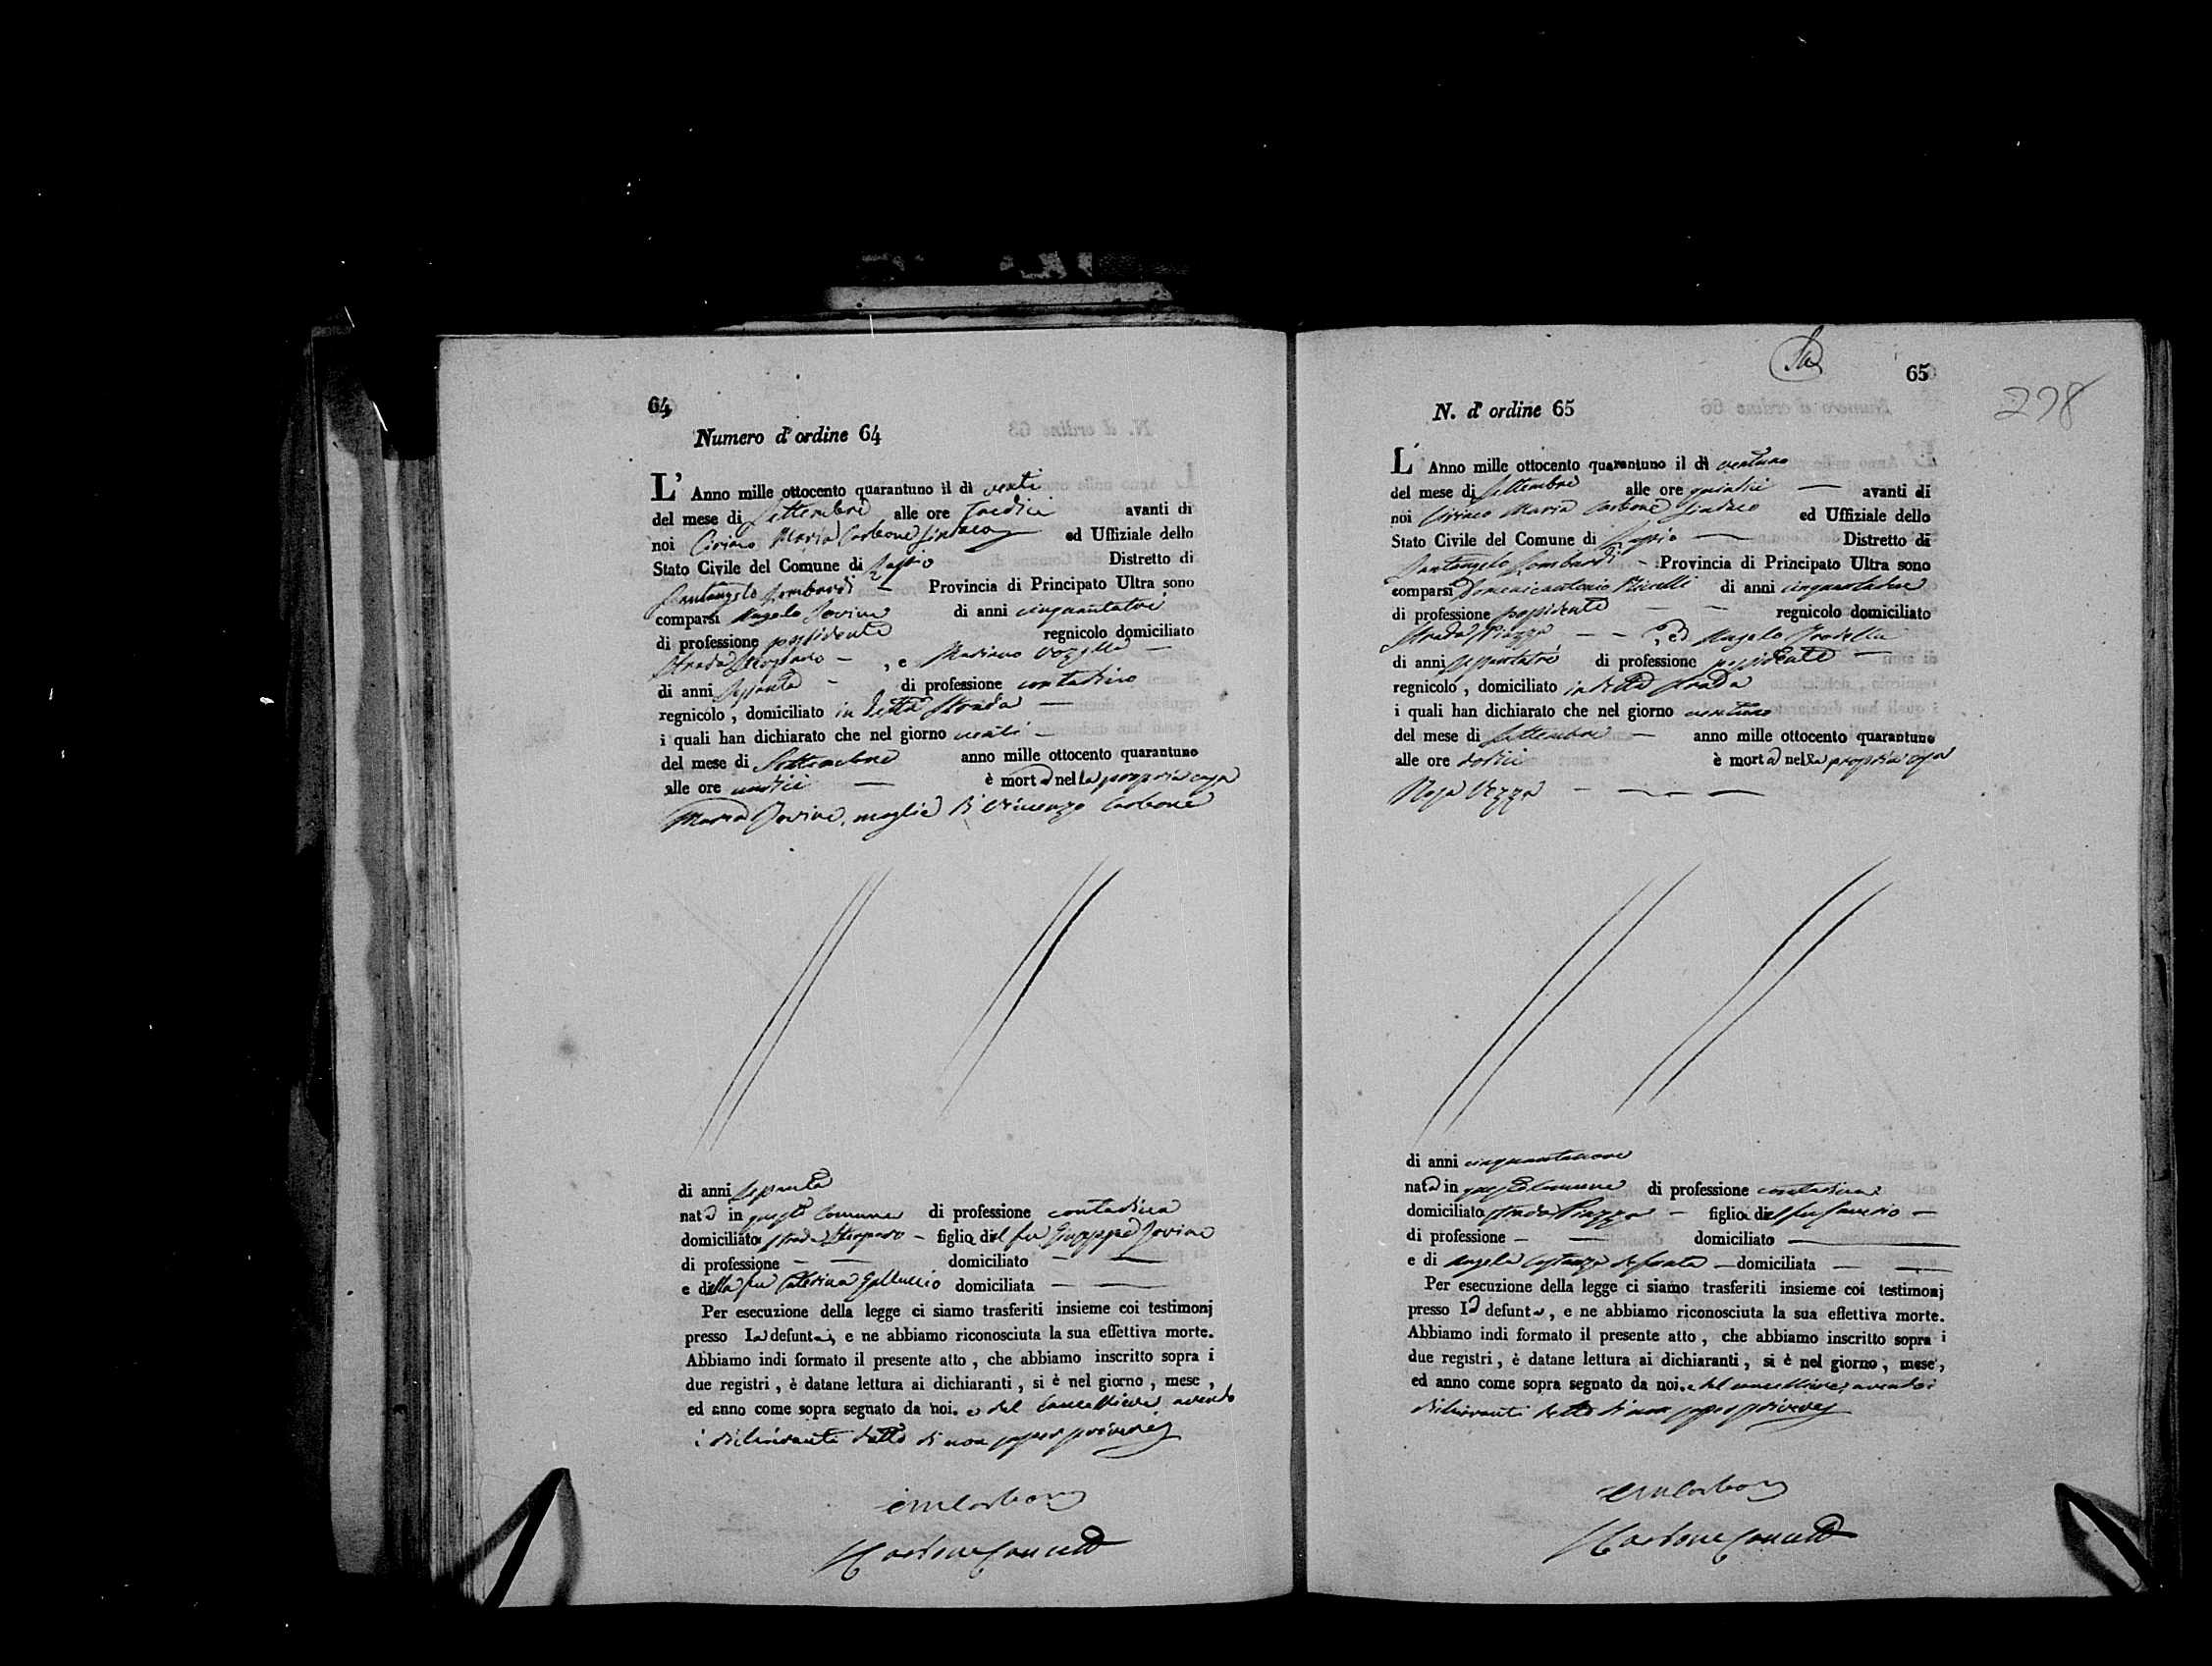 64
Numero d'ordine 64
L' Anno mille ottocento quarantuno il dì venti
del mese di Settembre alle ore tredici avanti di
noi Ciriaco Maria Carbone Sindaco ed Uffiziale dello
Stato Civile del Comune di Distretto di
Santangelo Lombardi Provincia di Principato Ultra sono
comparsi Angelo Iovine di anni cinquantatre
di professione possidente regnicolo domiciliato
Strada , e Mariano
di anni di professione contadino
regnicolo , domiciliato in detta Strada
i quali han dichiarato che nel giorno venti
del mese di Settembre anno mille ottocento quarantuno
alle ore undici è morta nella propria casa
Maria Iovine, moglie di Vincenzo Carbone
di anni
nata in questo Comune di professione contadina
domiciliata strada figlia del fu Giuseppe Iovine
di professione — domiciliato —
e della fu Caterina Galluccio domiciliata —
Per esecuzione della legge ci siamo trasferiti insieme coi testimonj
presso la defunta, e ne abbiamo riconosciuta la sua effettiva morte.
Abbiamo indi formato il presente atto , che abbiamo inscritto sopra i
due registri , è datane lettura ai dichiaranti , si è nel giorno , mese ,
ed anno come sopra segnato da noi. e dal Cancelliere avendo
i dichiaranti detto di non saper scrivere
CM Carbone
Carbone Cancell
65
298
N. d' ordine 65
L' Anno mille ottocento quarantuno il dì ventuno
del mese di Settembre alle ore quindici — avanti di
noi Ciriaco Maria Carbone Sindaco ed Uffiziale dello
Stato Civile del Comune di Distretto di
Santangelo Lombardi - Provincia di Principato Ultra sono
comparsi Domenicantonio di anni
di professione possidente — regnicolo domiciliato
Strada Piazza — , ed Angelo
di anni di professione possidente —
regnicolo , domiciliato in detta strada
i quali han dichiarato che nel giorno ventuno
del mese di Settembre — anno mille ottocento quarantuno
alle ore dodici è morta nella propria casa
Rosa Vozza —
di anni cinquantanove
nata in questo Comune di professione contadina
domiciliata strada Piazza — figlia del fu Saverio —
di professione — domiciliato —
e di Angela Costanza defunta — domiciliata —
Per esecuzione della legge ci siamo trasferiti insieme coi testimonj
presso la defunta , e ne abbiamo riconosciuta la sua effettiva morte.
Abbiamo indi formato il presente atto , che abbiamo inscritto sopra i
due registri , è datane lettura ai dichiaranti , si è nel giorno , mese ,
ed anno come sopra segnato da noi. e dal cancelliere, avendo i
dichiaranti detto di non saper scrivere
CM Carbone
Carbone Cancell